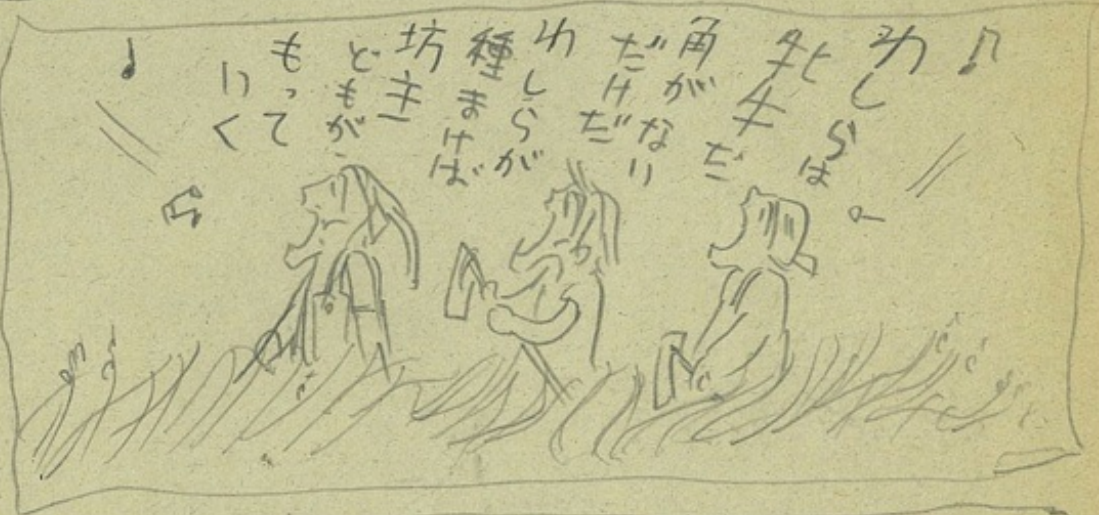 わしらは
牝牛だ
角がない
だけだ
わしらが
種まけば
坊主
どもが
もって
いく